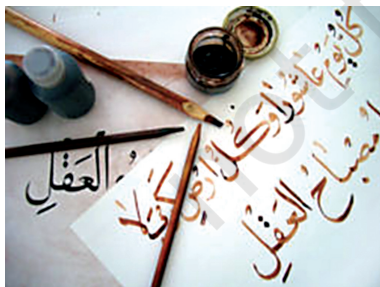 كُلُّ يَومٍ عاشُورا وَ كُلُّ ارضٍ كَربَلا
مصباحُ العَقلِ
العَقْلِ
not